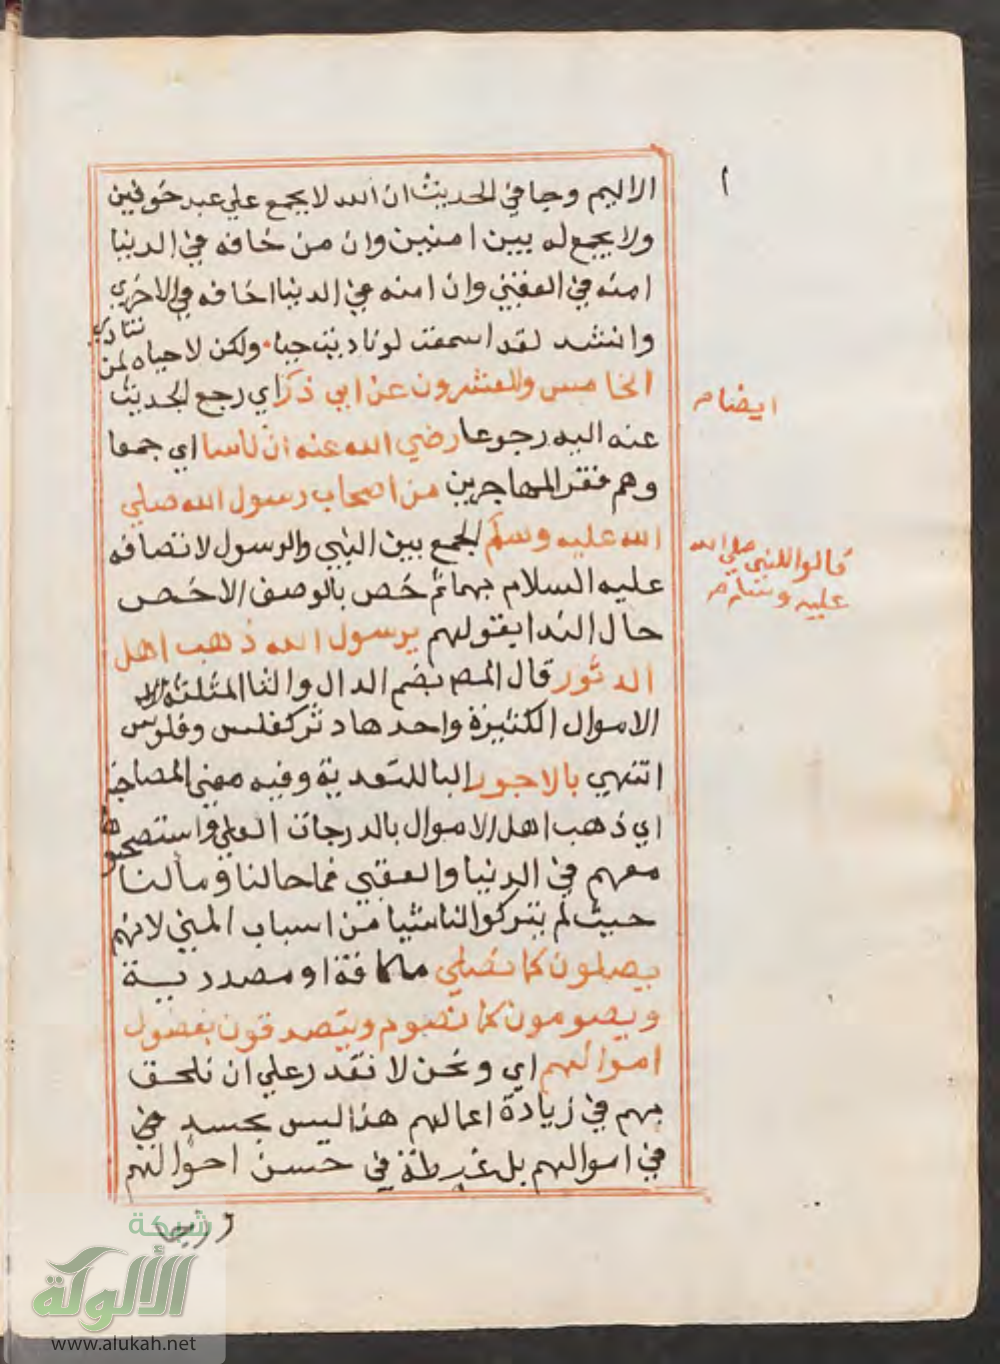 الاليم وجا في الحديث ان الله لا يجمع علي عبد خوفين
ولا يجمع له بين امنين وان من خافه في الدنيا
امنه في العقبي وان امنه في الدنيا اخافه في الاخري
وانشد لقد اسمعت لو ناديت حيا ولكن لا حياه لمن
تنادي
الخامس والعشرون عن ابي ذر اي رجع الحديث
ايضا
عنه اليه رجوعا رضي الله عنه ان ناسا اي جمعا
وهم فقرا المهاجرين من اصحاب رسول الله صلي
الله عليه وسلم الجمع بين النبي والرسول لاتصافه
قالوا للنبي صلي الله
عليه وسلم
عليه السلام بهما ثم خص بالوصف الاخص
حال الندا بقولهم يرسول الله ذهب اهل
الدثور قال المص بضم الدال والثا المثلثة
الاموال الكثيرة واحدها دثر كفلس وفلوس
انتهي بالاجور البا للتعدية وفيه معني المصاحبة
اي ذهب اهل الاموال بالدرجات العلي واستصحبوها
معهم في الدنيا والعقبي فما حالنا وما لنا
حيث لم يتركوا لنا شيا من اسباب المني لانهم
يصلون كما نصلي ما كافة او مصدرية
ويصومون كما نصوم ويتصدقون بفضول
اموالهم اي ونحن لا نقدر علي ان نلحق
بهم في زيادة اعمالهم هذا ليس بحسد
في اموالهم بل غبطة في حسن احوالهم
شبكة
الألوكة
www.alukah.net